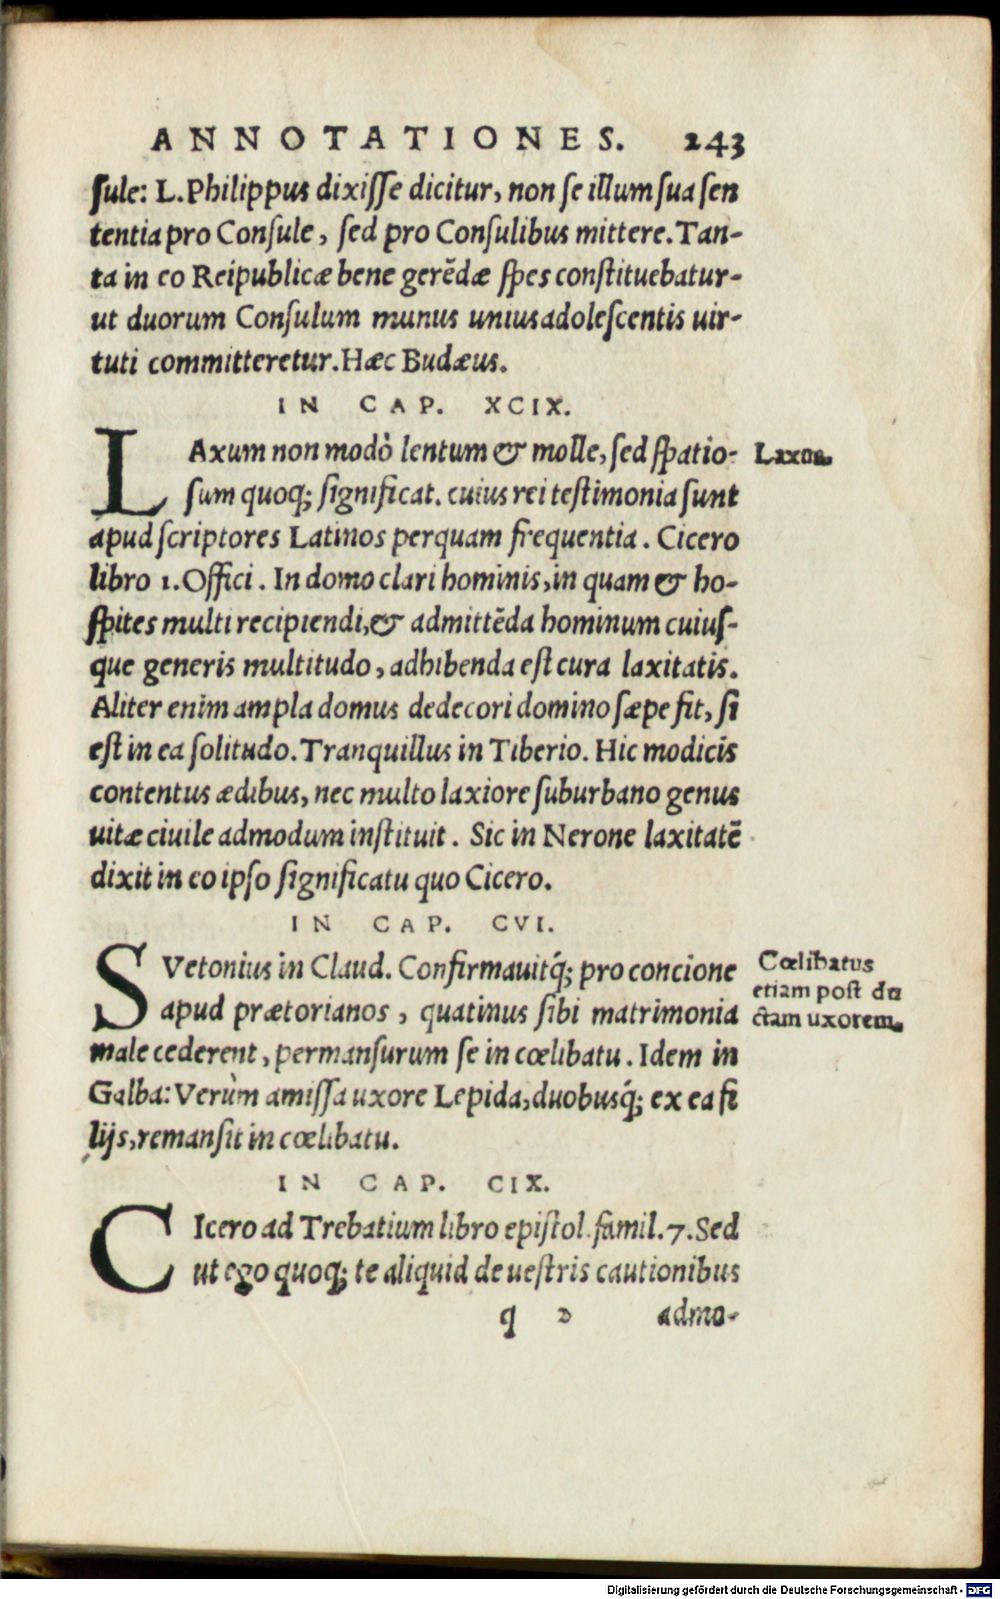 ANNOTATIONES. 243
ſule: L. Philippus dixiſſe dicitur, non ſe illum ſua ſen
tentia pro Conſule, ſed pro Conſulibus mittere. Tan-
ta in eo Reipublicæ bene gerẽdæ ſpes conſtituebatur-
ut duorum Conſulum munus unius adoleſcentis uir-
tuti committeretur. Hæc Budæus.
IN CAP. XCIX.
LAxum non modò lentum & molle, ſed ſpatio-
Laxon.
ſum quoq; ſignificat. cuius rei teſtimonia ſunt
apud ſcriptores Latinos perquam frequentia. Cicero
libro 1. Offici. In domo clari hominis, in quam & ho-
ſpites multi recipiendi, & admittẽda hominum cuiuſ-
que generis multitudo, adhibenda eſt cura laxitatis.
Aliter enim ampla domus dedecori domino ſæpe fit, ſi
eſt in ea ſolitudo. Tranquillus in Tiberio. Hic modicis
contentus ædibus, nec multo laxiore ſuburbano genus
uitæ ciuile admodum inſtituit. Sic in Nerone laxitatẽ
dixit in eo ipſo ſignificatu quo Cicero.
IN CAP. CVI.
SVetonius in Claud. Confirmauitq́; pro concione
apud prætorianos, quatinus ſibi matrimonia
male cederent, permanſurum ſe in cœlibatu. Idem in
Galba: Verùm amiſſa uxore Lepida, duobusq́; ex ea fi
lijs, remanſit in cœlibatu.
Cœlibatus
etiam poſt du
ctam uxorem.
IN CAP. CIX.
CIcero ad Trebatium libro epiſtol. famil. 7. Sed
ut ego quoq; te aliquid de ueſtris cautionibus
q 2 admo-
Digitalisierung gefördert durch die Deutsche Forschungsgemeinschaft - DFG